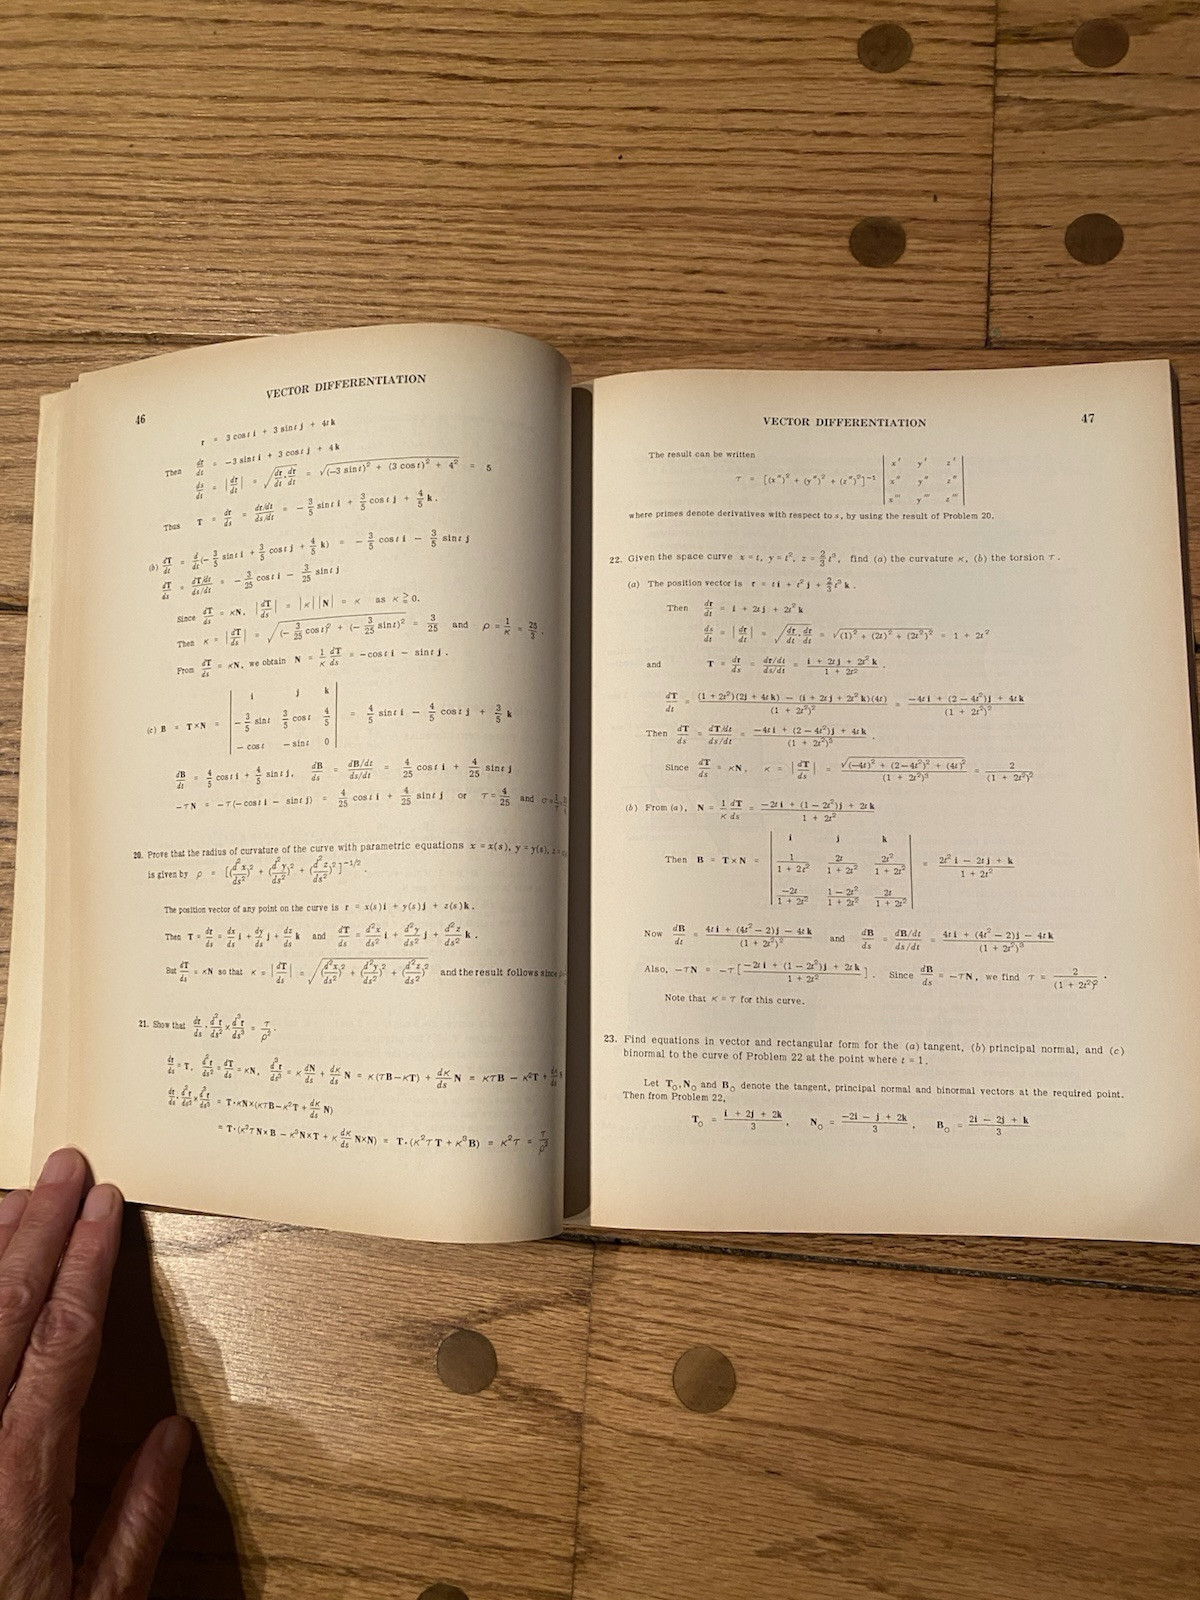 46
VECTOR DIFFERENTIATION
r = 3 cos t i + 3 sin t j + 4t k
Then dr/dt = −3 sin t i + 3 cos t j + 4k
ds/dt = |dr/dt| = √(dr/dt · dr/dt) = √((−3 sin t)² + (3 cos t)² + 4²) = 5
Thus T = dr/ds = (dr/dt)/(ds/dt) = −3/5 sin t i + 3/5 cos t j + 4/5 k.
(b) dT/dt = d/dt(−3/5 sin t i + 3/5 cos t j + 4/5 k) = −3/5 cos t i − 3/5 sin t j
dT/ds = (dT/dt)/(ds/dt) = −3/25 cos t i − 3/25 sin t j
Since dT/ds = κN, |dT/ds| = |κ||N| = κ as κ ≧ 0.
Then κ = |dT/ds| = √((−3/25 cos t)² + (−3/25 sin t)²) = 3/25 and ρ = 1/κ = 25/3.
From dT/ds = κN, we obtain N = 1/κ dT/ds = −cos t i − sin t j.
(c) B = T×N = | i j k ; −3/5 sin t 3/5 cos t 4/5 ; −cos t −sin t 0 | = 4/5 sin t i − 4/5 cos t j + 3/5 k
dB/dt = 4/5 cos t i + 4/5 sin t j, dB/ds = (dB/dt)/(ds/dt) = 4/25 cos t i + 4/25 sin t j
−τN = −τ(−cos t i − sin t j) = 4/25 cos t i + 4/25 sin t j or τ = 4/25 and σ = 1/τ =
20. Prove that the radius of curvature of the curve with parametric equations x = x(s), y = y(s), z =
is given by ρ = [(d²x/ds²)² + (d²y/ds²)² + (d²z/ds²)²]^−1/2.
The position vector of any point on the curve is r = x(s)i + y(s)j + z(s)k.
Then T = dr/ds = dx/ds i + dy/ds j + dz/ds k and dT/ds = d²x/ds² i + d²y/ds² j + d²z/ds² k.
But dT/ds = κN so that κ = |dT/ds| = √((d²x/ds²)² + (d²y/ds²)² + (d²z/ds²)²) and the result follows since
21. Show that dr/ds · d²r/ds² × d³r/ds³ = τ/ρ².
dr/ds = T, d²r/ds² = dT/ds = κN, d³r/ds³ = κ dN/ds + dκ/ds N = κ(τB−κT) + dκ/ds N = κτB − κ²T + dκ/ds N
dr/ds · d²r/ds² × d³r/ds³ = T·κN×(κτB−κ²T + dκ/ds N)
= T·(κ²τN×B − κ³N×T + κ dκ/ds N×N) = T·(κ²τT + κ³B) = κ²τ = τ/ρ²
VECTOR DIFFERENTIATION
47
The result can be written
τ = [(x″)² + (y″)² + (z″)²]⁻¹ | x′ y′ z′ ; x″ y″ z″ ; x‴ y‴ z‴ |
where primes denote derivatives with respect to s, by using the result of Problem 20.
22. Given the space curve x = t, y = t², z = 2/3 t³, find (a) the curvature κ, (b) the torsion τ.
(a) The position vector is r = t i + t² j + 2/3 t³ k.
Then dr/dt = i + 2t j + 2t² k
ds/dt = |dr/dt| = √(dr/dt · dr/dt) = √((1)² + (2t)² + (2t²)²) = 1 + 2t²
and T = dr/ds = (dr/dt)/(ds/dt) = (i + 2t j + 2t² k)/(1 + 2t²).
dT/dt = ((1 + 2t²)(2j + 4t k) − (i + 2t j + 2t² k)(4t))/(1 + 2t²)² = (−4t i + (2 − 4t²)j + 4t k)/(1 + 2t²)²
Then dT/ds = (dT/dt)/(ds/dt) = (−4t i + (2 − 4t²)j + 4t k)/(1 + 2t²)³.
Since dT/ds = κN, κ = |dT/ds| = √((−4t)² + (2 − 4t²)² + (4t)²)/(1 + 2t²)³ = 2/(1 + 2t²)²
(b) From (a), N = 1/κ dT/ds = (−2t i + (1 − 2t²)j + 2t k)/(1 + 2t²)
Then B = T×N = | i j k ; 1/(1 + 2t²) 2t/(1 + 2t²) 2t²/(1 + 2t²) ; −2t/(1 + 2t²) (1 − 2t²)/(1 + 2t²) 2t/(1 + 2t²) | = (2t² i − 2t j + k)/(1 + 2t²)
Now dB/dt = (4t i + (4t² − 2)j − 4t k)/(1 + 2t²)² and dB/ds = (dB/dt)/(ds/dt) = (4t i + (4t² − 2)j − 4t k)/(1 + 2t²)³
Also, −τN = −τ[(−2t i + (1 − 2t²)j + 2t k)/(1 + 2t²)]. Since dB/ds = −τN, we find τ = 2/(1 + 2t²)².
Note that κ = τ for this curve.
23. Find equations in vector and rectangular form for the (a) tangent, (b) principal normal, and (c)
binormal to the curve of Problem 22 at the point where t = 1.
Let T₀, N₀ and B₀ denote the tangent, principal normal and binormal vectors at the required point.
Then from Problem 22,
T₀ = (i + 2j + 2k)/3, N₀ = (−2i − j + 2k)/3, B₀ = (2i − 2j + k)/3